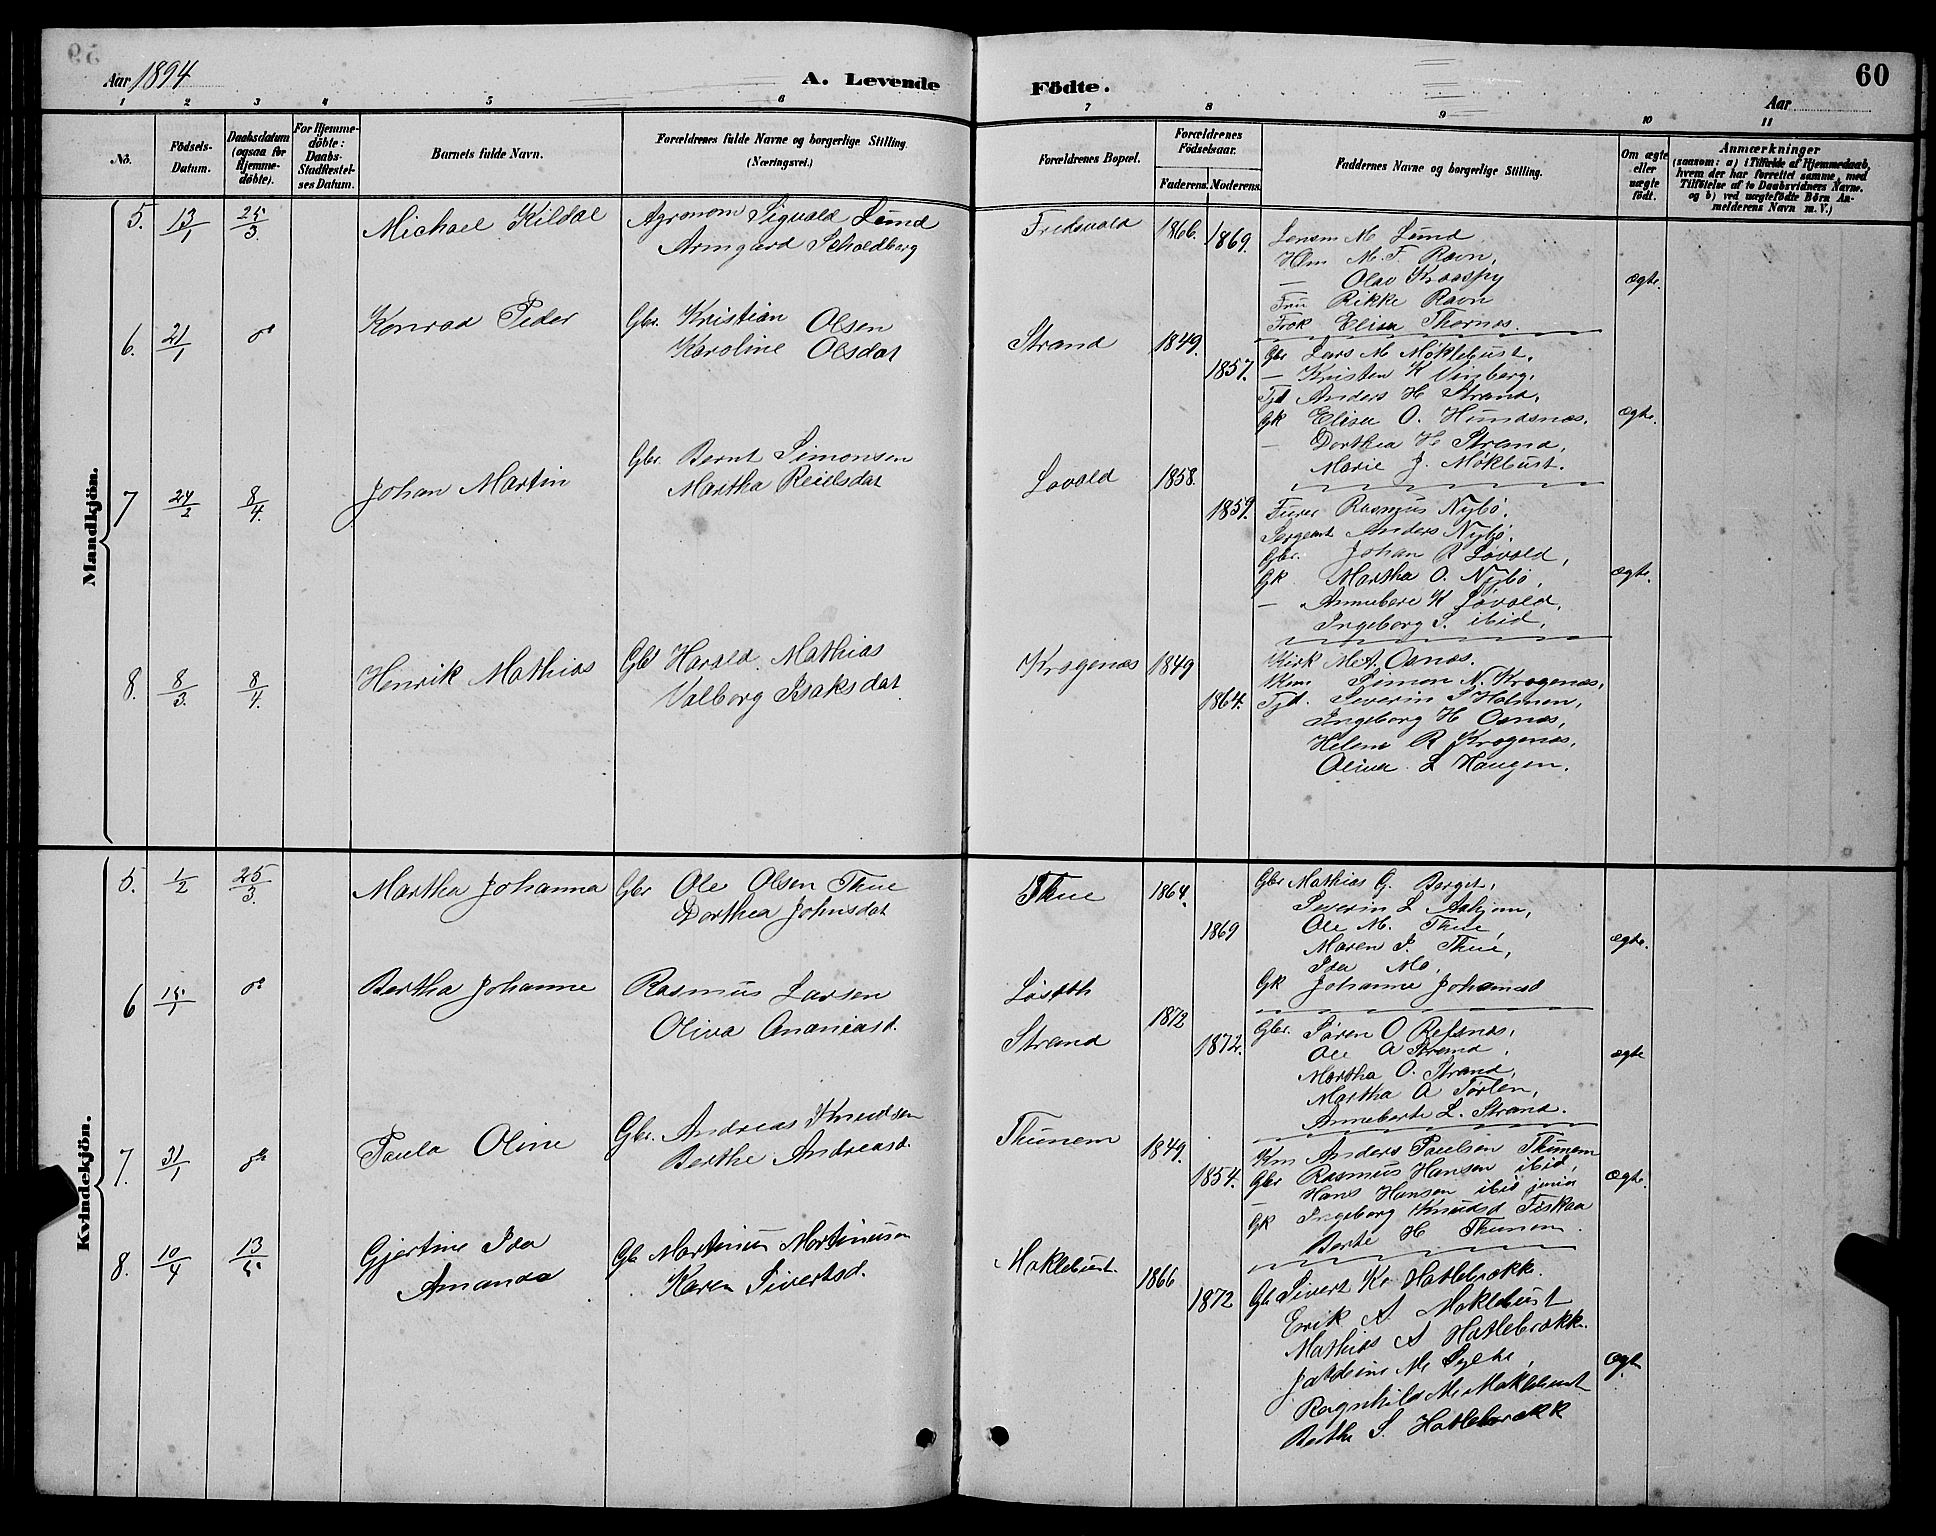 59
Aar 1894
A. Levende Födte.
60
Aar
1 2 3 4 5 6 7 8 9 10 11
No.
Födsels-Datum.
Daabsdatum (ogsaa for Hjemme-döbte).
For Hjemme-döbte: Daabs-Stadfæstel-ses Datum.
Barnets fulde Navn.
Forældrenes fulde Navne og borgerlige Stilling. (Næringsvei.)
Forældrenes Bopæl.
Forældrenes Födselsaar.
Faderens. Moderens.
Faddernes Navne og borgerlige Stilling.
Om ægte eller uægte födt.
Anmærkninger
(saasom: a) i Tilfælde af Hjemmedaab,
hvem der har forrettet samme, med
Tilföielse af to Daabsvidners Navne,
og b) ved uægtefödte Börn An-
melderens Navn m. V.)
Mandkjön.
5. 13/1 25/3. Michael Kildal
Agronom Sigvald Lund
Armgard Scholdberg
Fredsvold 1866. 1869.
Lensm M Lund
Hlm M. F. Ravn,
— Olav Kraaspy
Fru Rikke Ravn
Frok Elisa Thornæs.
ægte.
6. 21/1 do Konrad Peder
Gbr. Kristian Olsen
Karoline Olsdat
Strand 1849. 1857.
Gbr Lars M Møklebust,
— Kristen K Vinberg,
Tjd Anders H Strand,
Gk Elisa O. Hundsnes,
— Dorthea H Strand,
Marie J. Møklbust.
ægte.
7 24/2 8/4. Johan Martin
Gbr. Bernt Simonsen
Martha Reielsdat
Lovold 1858. 1859.
Furer Rasmus Nybø.
Sergeant Anders Nybø.
Gbr. Johan R Løvold,
Gk Martha O. Nybø,
— Annebere K Løvold,
Ingeborg S. ibid,
ægte.
8. 8/3. 8/4. Henrik Mathias
Gbr Harald Mathias
Valborg Isaksdat
Kragenæs 1849 1864.
Kirk M A. Osnæs.
Km Simon N. Kragenæs,
Tjd. Severin S Holmen,
Ingeborg H Osnæs,
Helene R Kragenæs,
Olina L Haugen.
Kvindekjön.
5. 1/2 25/3. Martha Johanna
Gbr Ole Olsen Thue
Dorthea Johnsdat
Thue 1864. 1869
Gbr Mathias G. Berget,
Severin L Aahjem,
Ole M. Thue,
Maren P. Thue,
Ida Mo,
Gk Johanne Johansd
ægte.
6 15/1 do Bertha Johanne
Rasmus Larsen
Oliva Ananiasd.
Løseth
Strand
1872 1872.
Gbr. Søren O Refsnæs,
Ole A Strand,
Martha O. Strand,
Martha A Torlen,
Anneberte L. Strand.
ægte
7. 31/1 do Paula Oline
Gbr. Andreas Knudsen
Berthe Andreasd.
Thunem 1849. 1854.
Km Anders Paulsen Thunem
Gbr Rasmus Hansen ibid,
— Hans Hansen ibid junior
Gk Ingeborg Knudsd Fiskaa
Berte H Thunem.
Ægte.
8. 10/4 13/5 Gjertine Ida
Amanda
Gb Martinus Martinusen
Karen Sivertsd.
Møklebust 1866 1872
Gb Sivert Kr Hatlebrække.
Erik A. Moklebust
Mathias A Hatlebrække.
Jakobine M. Sylte,
Ragnhild M. Moklebust
Berthe S. Hatlebrækk
Ægte.